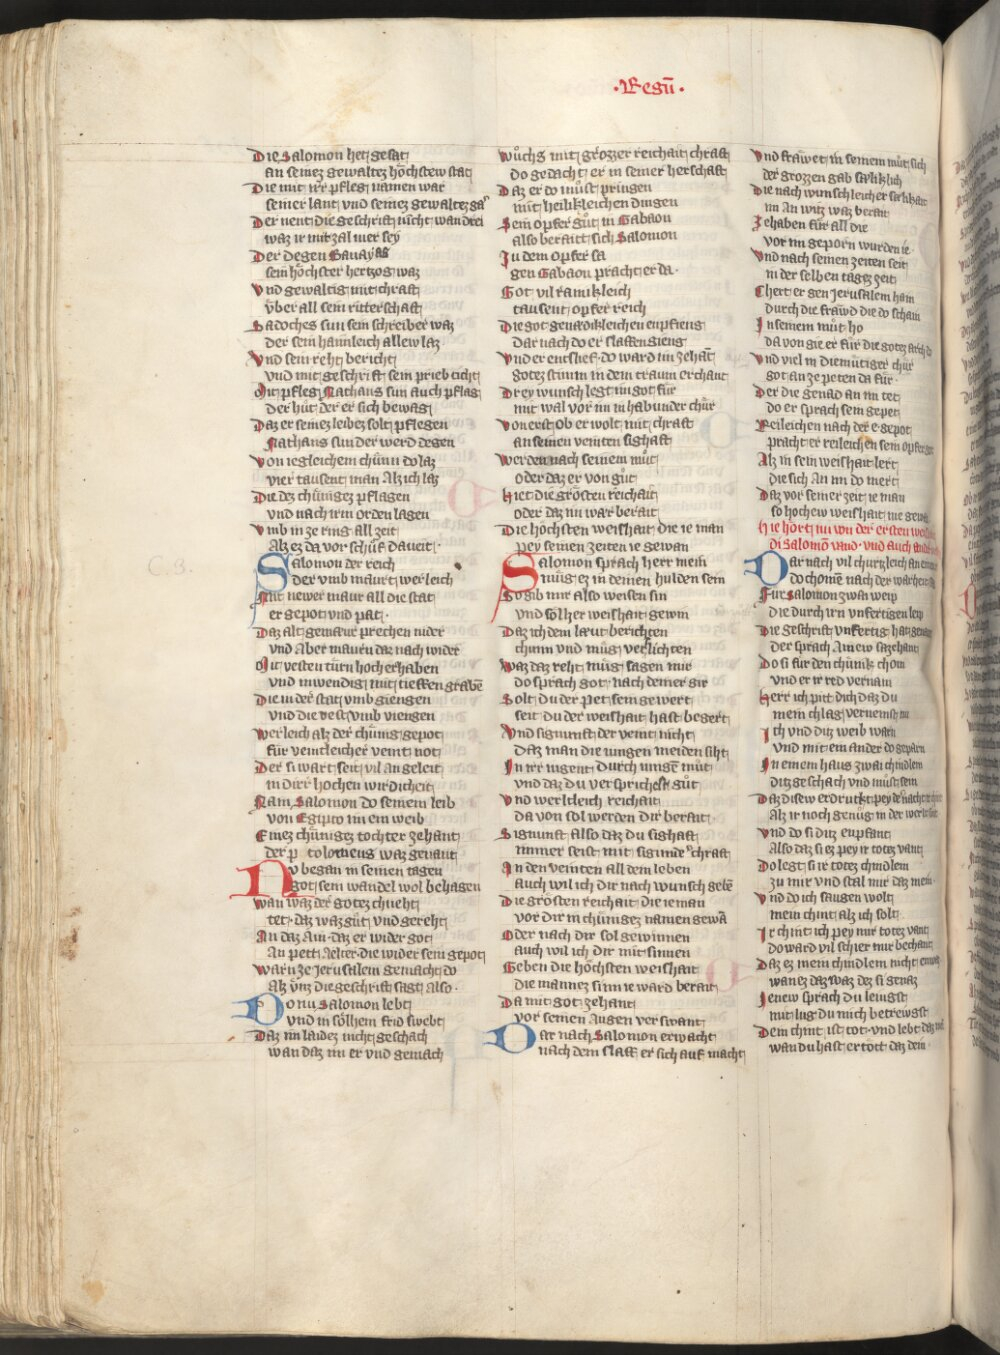 ·Regū·
Die Salomon het gesat
an seinez gewaltez höchstew stat
Die mit irr pfleg namen war
seiner lant vnd seinez gewaltez gar
Der nent die geschrift nicht wan drei
waz ir mit zal mer sey
Der degen Banayas
sein höchster hertzog waz
Vnd gewaltig mit chraft
vber all sein ritterschaft
Sadoches sun sein schreiber waz
der sein hainleich allew laz
Vnd sein reht bericht
vnd mit geschrift sein prieb ticht
Mit pfleg Nathans sun auch pflag
der hüt der er sich bewag
Daz er seinez leibez solt pflegen
Nathans sun der werd degen
Von iegleichem chünn do laz
vier tausent man Alz ich laz
Die dez chünigez pflagen
vnd nach irm orden lagen
Vmb in ze ring all zeit
Alz ez da vor schuf daueit·
Salomon der reich
der vmb maurt werleich
Mit newer maur all die stat
er gepot vnd pat·
Daz alt gemæur prechen nider
vnd Aber maurn daz nach wider
Mit vesten türn hoch erhaben
vnd inwendig mit tieffen grabē
Die in der stat vmb giengen
vnd die vest vmb viengen
Werleich alz der chünig gepot
für veintleicher veint not
Der si wart seit vil an geleit
in dirr hochen wirdicheit
Nam Salomon do seinem leib
von Egipto im ein weib
Einez chünigez tochter zehant
der ptolomeus waz genant
Nv began in seinen tagen
got sein wandel wol behagen
Wan waz der gotez chneht
tet· daz waz güt vnd gereht
An daz Ain· daz er wider got
An pett Aelter· die wider sein gepot
Warn ze Jerusalem gemacht do
Alz vnz die geschrift sagt also·
Do nu Salomon lebt
vnd in sölhem frid swebt
Daz im laidez nicht geschach
wan daz im er vnd gemach
Wuchs mit grozzer reichait chraft
do gedacht er in seiner herschaft
Daz er do müst pringen
mit heilikleichen dingen
Sein opfer güt in Gabaon
also berait sich Salomon
Zu dem opfer sa
gen Gabaon pracht er da·
Got vil ramikleich
tausent opfer reich
Die got genædikleichen enpfieng
dar nach do er slaffen gieng
Vnd er entslief· do ward im zehāt
gotez stimm in dem traum erchant
Drey wunsch legt im got für
mit wal vor im in habunder chür
Von erst ob er wolt mit chraft
an seinen veinten sighaft
Werden nach seinem müt
oder daz er von güt
Hiet die grösten reichait
oder daz im war berait
Die höchsten weishait die ie man
pey seinen zeiten ie gewan
Salomon sprach herr mein
müg ez in deinen hulden sein
So gib mir also weisen sin
vnd sölher weishait gewin
Daz ich dem læut berichten
chunn vnd müg verslichten
Waz daz reht müg sagen mir
do sprach got· nach deiner gir
Solt du der pet sein gewert
seit du der weishait hast begert
Vnd sigunft der veint nicht
daz man die iungen meiden siht
In irr iugent durch irngē müt
vnd daz du versprichest güt
Vnd werltleich reichait
da von sol werden dir berait·
Sigunft also daz du sighaft
immer seist mit sigunde chraft
An den veinten all dein leben
auch wil ich dir nach wunsch gebē
Die grösten reichait die ieman
vor dir in chünigez namen gewā
Oder nach dir sol gewinnen
auch wil ich dir mit sinnen
Geben die höchsten weishait
die mannez sinn ie ward berait
Da mit got zehant
vor seinen Augen verswant
Dar nach Salomon erwacht
nach dem slaff er sich auf macht
Vnd frawet in seinem müt sich
der grozzen gab sæliklich
Die nach wunschleicher sælikait
im An witz waz berait
Ze haben für all die
vor im geporn wurden ie
Vnd nach seinen zeiten seit
in der selben tagez zeit
Chert er gen Jerusalem haim
durch die frawd die do schain
In seinem müt ho
da von gie er für die gotez arch do
Vnd viel in diemütiger chür
got an ze peten da für·
Der die genad an im tet
do er sprach sein gepet
Reileichen nach der e· gepot
pracht er reileichen sein opfer got
Alz in sein weishait lert
die sich An im do mert
Daz vor seiner zeit ie man
so hochew weishait nie gewan
Hie hört nu von der ersten
di Salomō vand· vnd auch
Dar nach vil churzleich an
do chome nach der warheit
Für Salomon zwai weip
die durch irn vnfertigen leip
Die geschrift vnfertig hat genant
der sprach Ainew sazehant
Do si für den chünik chom
vnd er ir red vernam
Herr ich pitt dich daz du
mein chlag vernemst nu
Ich vnd ditz weib warn
vnd mit ein ander do geparn
In einem haus zwai chindlein
ditz geschach vnd müst sein
Daz disew erdrukt pey der nacht
Alz ir noch genüg in der werlt
Vnd do si ditz enpfant
Also daz si ez pey ir totez vant
Do legt si ir totez chindlein
zu mir vnd stal mir daz mein
Vnd do ich saugen wolt
mein chint alz ich solt
Ir chint ich pey mir totez vant
do ward vil schier mir bechant
Daz ez mein chindlein nicht
wan ez daz waz dez si genaz
Jenew sprach du leugst
mit lug du mich betrewgst
Dein chint ist tot· vnd lebt daz mein
wan du hast ertött daz dein·
C. 3.